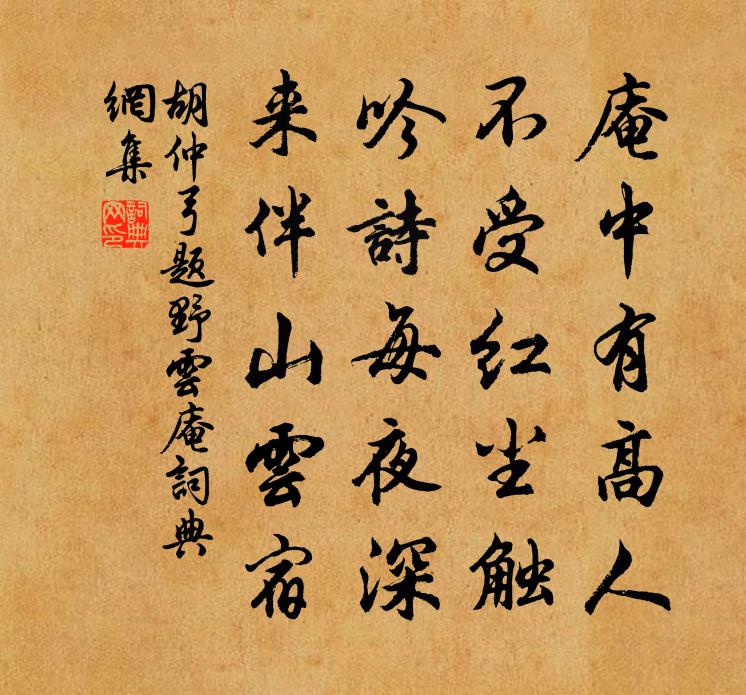 庵中有高人
不受红尘触
吟詩每夜深
来伴山雲宿
胡仲弓题野雲庵詞典
網集
詞典網印